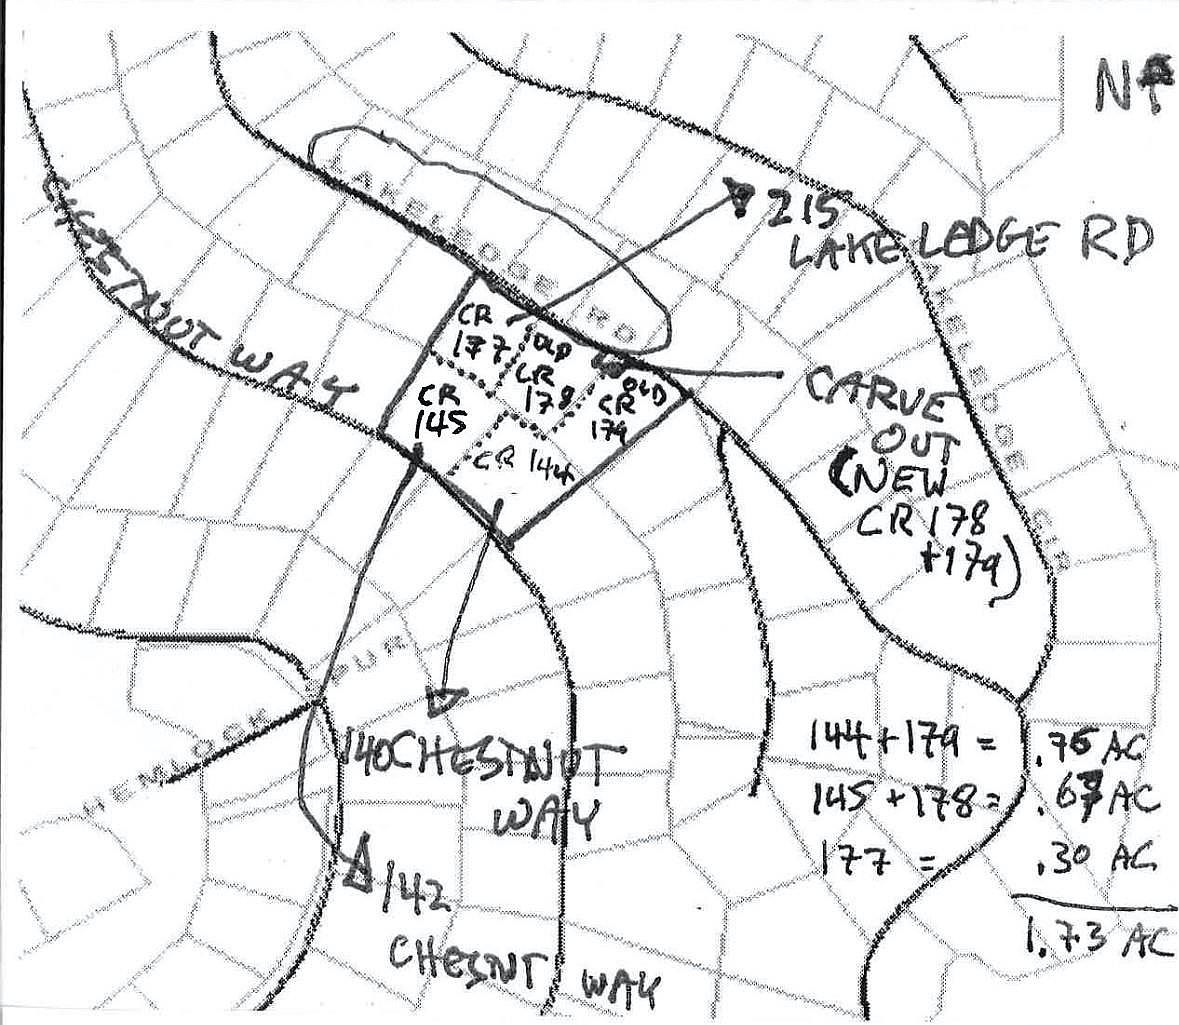 N
CHESTNUT WAY
LAKELEDGE RD
215
LAKE LEDGE RD
CR
177
OLD
CR
178
OLD
CR
179
CR
145
CR 144
CARVE
OUT
(NEW
CR 178
+179)
LAKELEDGE CIR
SPUR
HEMLOCK
140 CHESTNUT
WAY
142
CHESNT WAY
144 + 179 =
145 + 178 =
177 = .30 AC
1.73 AC